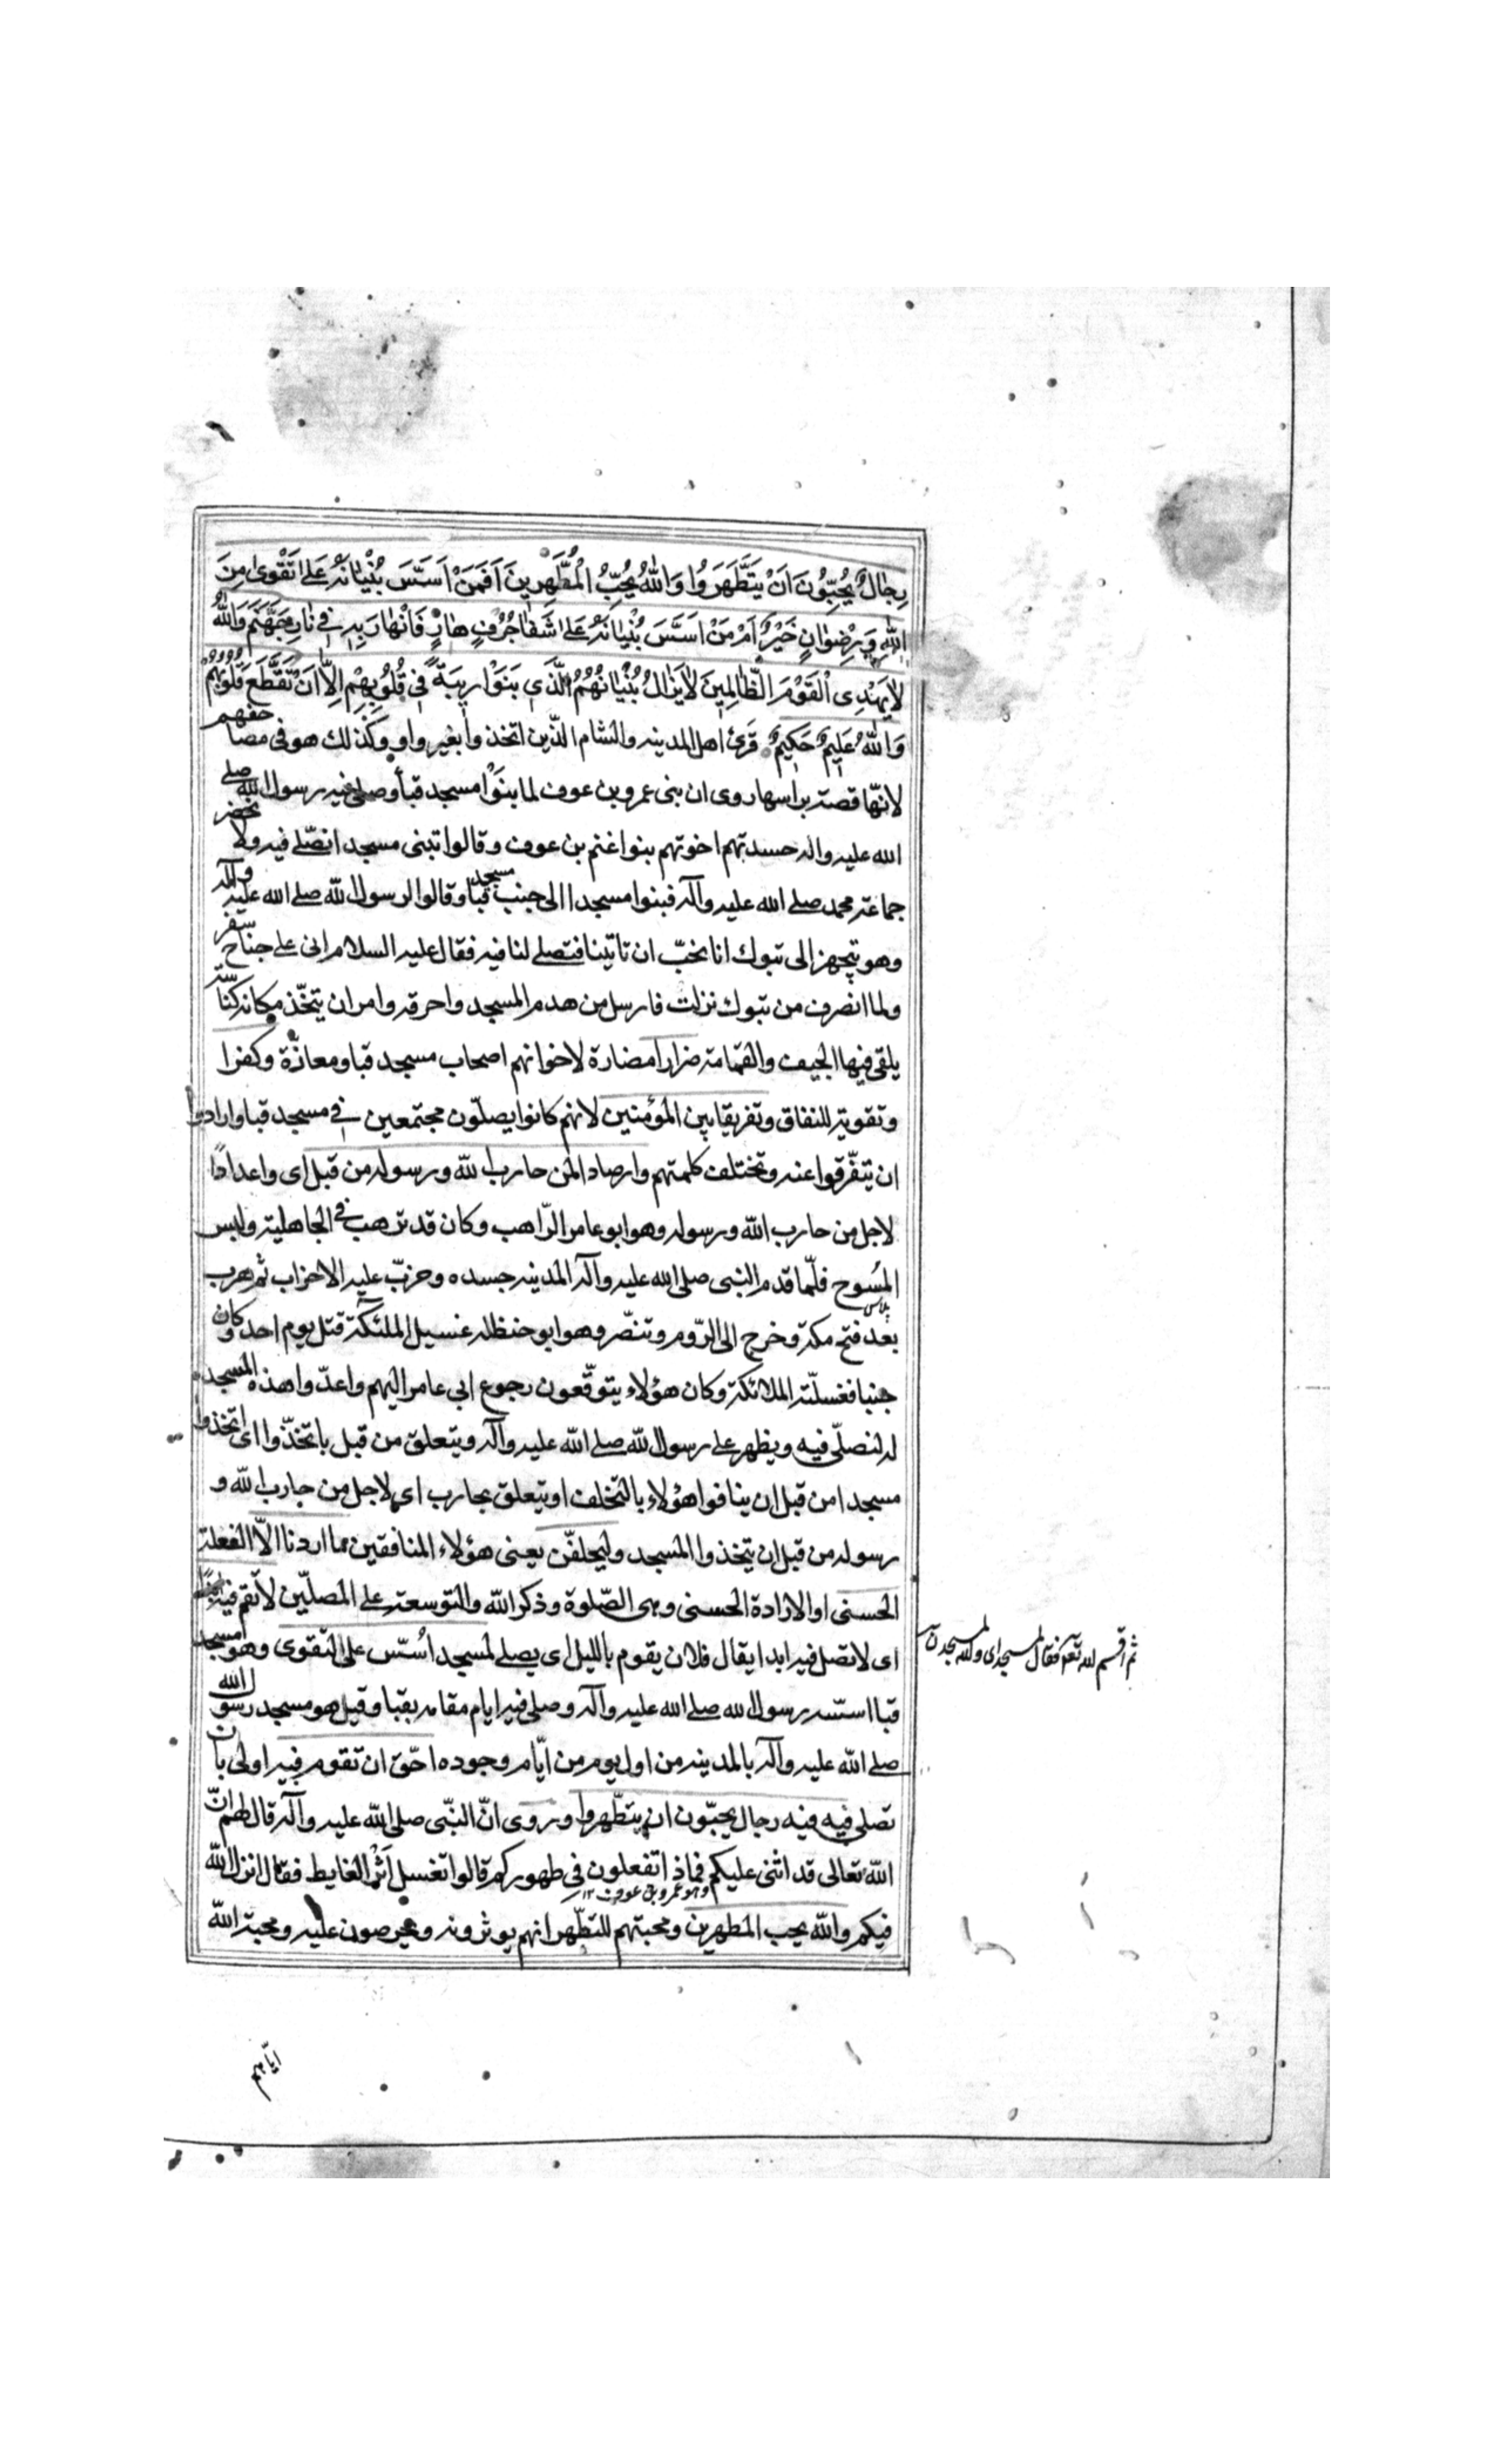 رِجٰالٌ يُحِبُّونَ اَنْ يَتَطَّهَرَوُا وَاَللهُ يُحِبُّ الْمُطَّهِرِينَ اَفَمَنْ اَسَّسَ بُنْيٰانَهُ عَلىٰ تَقْوىٰ مِنَ
اللهِ وَ رِضْوٰانٍ خَيْرٌ اَمْ مَنْ اَسَّسَ بُنْيٰانَهُ عَلىٰ شَفٰا جُرُفٍ هٰارٍ فَانْهٰارَ بِهِ فِي نٰارِ جَهَنَّمَ وَاللهُ
لاٰ يَهْدِى الْقَوْمَ الظّٰالِمِينَ لاٰ يَزٰالُ بُنْيٰانُهُمُ الَّذِي بَنَوْا رِيبَةً فِي قُلُوبِهِمْ اِلاّٰ اَنْ تَقَطَّعَ قُلُوبُهُمْ
وَاللهُ عَلِيمٌ حَكِيمٌ قرئ اهل المدينه والشام الذين اتخذوا بغير واو وكذلك هو فى مصاحفهم
لانّها قصة براسها روى ان بنى عمرو بن عوف لما بنوْا مسجد قبا وصلى فيه رسول الله صلى
الله عليه واله حسدتهم اخوتهم بنوا غنم بن عوف وقالوا تبنى مسجدا نصلّے فيه ولا نحضر
جماعة محمد صلے الله عليه وآله فبنوا مسجدا الى جنب مسجد قبا وقالوا لرسول الله صلے الله عليه وآله
وهو يتجهز الى تبوك انا نحبّ ان تاتينا فتصلے لنا فيه فقال عليه السلام انى على جناح سفر
ولما انصرف من تبوك نزلت فارسل من هدم المسجد واحرقه وامر ان يتخّذ مكانه كناسة
يلقى فيها الجيف والقمامة ضرارا مضارة لاخوانهم اصحاب مسجد قبا ومعازّة وكفرا
وتقوية للنفاق وتفريقا بين المؤمنين لانهم كانوا يصلّون مجتمعين في مسجد قبا وارادوا
ان يتفّرقوا عنه وتختلف كلمتهم وارصادا لمن حارب الله ورسوله من قبل اى واعدادًا
لاجل من حارب الله ورسوله وهو ابو عامر الرّاهب وكان قد ترهب فى الجاهلية ولبس
المسُوح فلّما قدم النبى صلى الله عليه وآله المدينه حسده وحزبّ عليه الاحزاب ثم هرب
پلاس
بعد فتح مكة وخرج الى الرّوم وتنصّر وهو ابو حنظله غسيل الملئكة قتل يوم احد وكان
جنبا فغسلّته الملائكة وكان هؤلاء يتوقّعون رجوع ابي عامر اليهم واعدّوا هذا المسجد
له لنصلّى فيه ويظهر على رسول الله صلے الله عليه وآله ويتعلق من قبل باتخذّوا اى اتخذوا
مسجدا من قبل ان ينافوا هؤلاء بالتخلف او يتعلق بحارب اي لاجل من حارب الله و
رسوله من قبل ان يتخذوا المسجد وليحلفّن يعنى هؤلاء المنافقين ما اردنا الاّ الفعلة
الحسنى او الارادة الحسنى وهى الصّلوة وذكر الله والتوسعة على المصلّين لاتقم فيه ابدًا
اى لا تصل فيه ابدا يقال فلان يقوم بالليل اى يصلے لمسجد اُسّس على التقوى وهو مسجد
ثم اقسم الله تعم فقال لمسجد اى والله لمسجد
قبا اسّسه رسول الله صلے الله عليه وآله وصلى فيه ايام مقامه بقبا وقيل هو مسجد رسول الله
صلے الله عليه وآله بالمدينه من اول يوم من ايّام وجوده احّق ان تقوم فيه اولى بان
تصلي فيه فيه رجال يحبّون ان يتطّهروا وروى انّ النبّى صلى الله عليه وآله قال لهم انّ
الله تعالى قد اثنى عليكم فماذا تفعلون في طهوركم قالوا نغسل اثر الغايط فقال انزل الله
وهو عمرو بن عوف ١٢
فيكم والله يحب المطهرين ومحبتهم للتطّهر انهم يوثرونه ويحرصون عليه ومحبة الله
ايّاهم